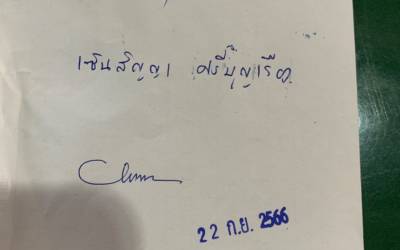 เซ็นสัญญา ศรีบุญเรือง
22 ก.ย. 2566